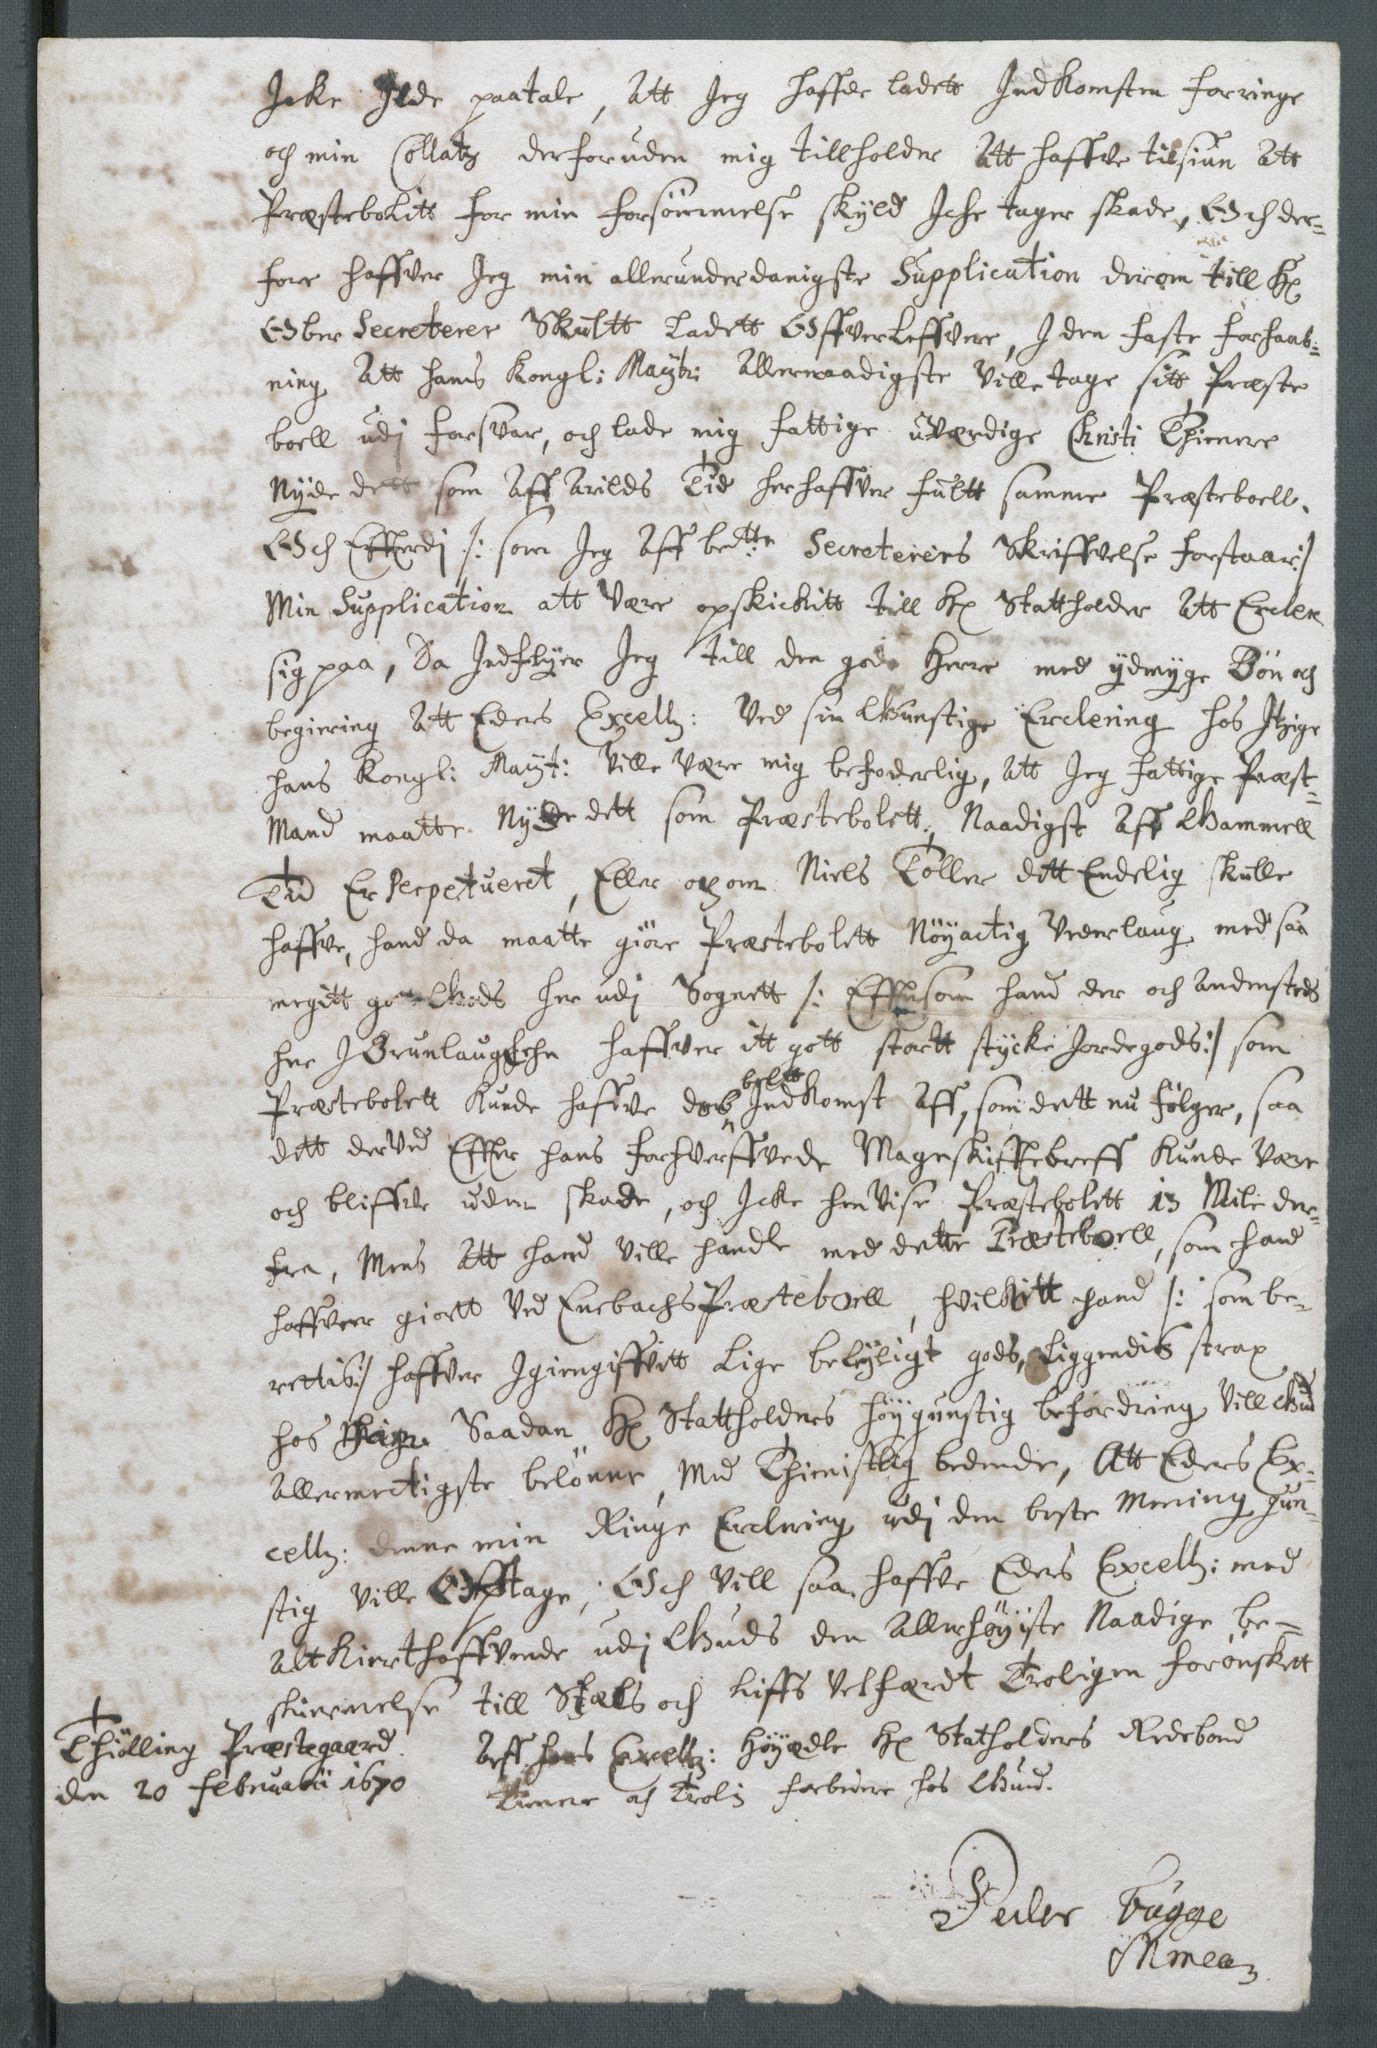 Icke Ilde paatale, Att Jeg haffde ladett Indkomsten forringe
och min Collatz derforuden mig tillholder Att haffve tilsiun Att
Præstebolitt for min forsömmelse skyld Iche tager skade, Och der-
fore haffver Jeg min allerunderdanigste Supplication derom till Hr
Ober Secreterer Skultt Ladett Offverleffvere, I den faste forhaab:
ning Att hans Kongl: Maytt: Allernaadigste Ville tage sitt Præste
boell udj forsvar, och lade mig fattige uværdige Christi Thienere
Nyde dett som Aff Arilds Tid her haffver fultt samme Præsteboell.
Och Efterdj /: som Jeg Aff bedtte Secreterers Skriffvelse forstaar:/
Min Supplication att være opskickitt till Hr Stattholder Att Ercler
sig paa, Da Indflyer Jeg till den gode Herre med ydmyge Bön och
begiering Att Eders Excell: Ved sin Gunstige Erclering hos Itzige
hans Kongl: Mayt: Ville være mig befoderlig, Att Jeg fattige Præst-
Mand maatte Nyde dett som Præstebolett, Naadigst Aff Gammell
Tid Er Perpetueret, Eller och om Niels Toller dett Endelig skulle
haffve, hand da maatte giöre Præstebolett Nöyactig Vederlaug med saa
megitt gott Gods her udj Sognett /: Eftersom hand der och Andensteds
her I Brunlaugs Lehn haffver itt gott stortt stycke Jordegods:/ som
Præstebolett Kunde haffve dob beltt Indkomst Aff, som dett nu fölger, saa
dett derved Efter hans forhverffvede Mageskiftebreff Kunde være
och bliffve uden skade, och Icke henvise Præstebolett 13 Mile der-
fra, Mens Att hand Ville handle med dette Præsteboell, som hand
haffver giortt Ved Enebachs Præsteboell, hvilkitt hand /: som be-
rettis:/ haffver Igiengiffvitt Lige beleyligt gods, Liggendis strax
hos Saadan Hr Stattholders höygunstig befordring Vill Gud
Allermectigste belönne, Med Thienistlig bedende, Att Eders Ex-
cell: denne min Ringe Erclering udj den beste Mening gun-
stig Ville Opptage, Och Vill saa haffve Eders Excell: med
Alt Kiert haffvende udj Guds den Allerhöyiste Naadige be-
skiermelse till Siæls och Liffs Velfærdt Troligen forönskett
Thiölling Præstegaard Aff hans Excell: Höyædle Hr Statholders Redebond
den 20 Februarii 1670 Tienere och Trolig forbedere hos Gud.
Peder Bugge
Mmea